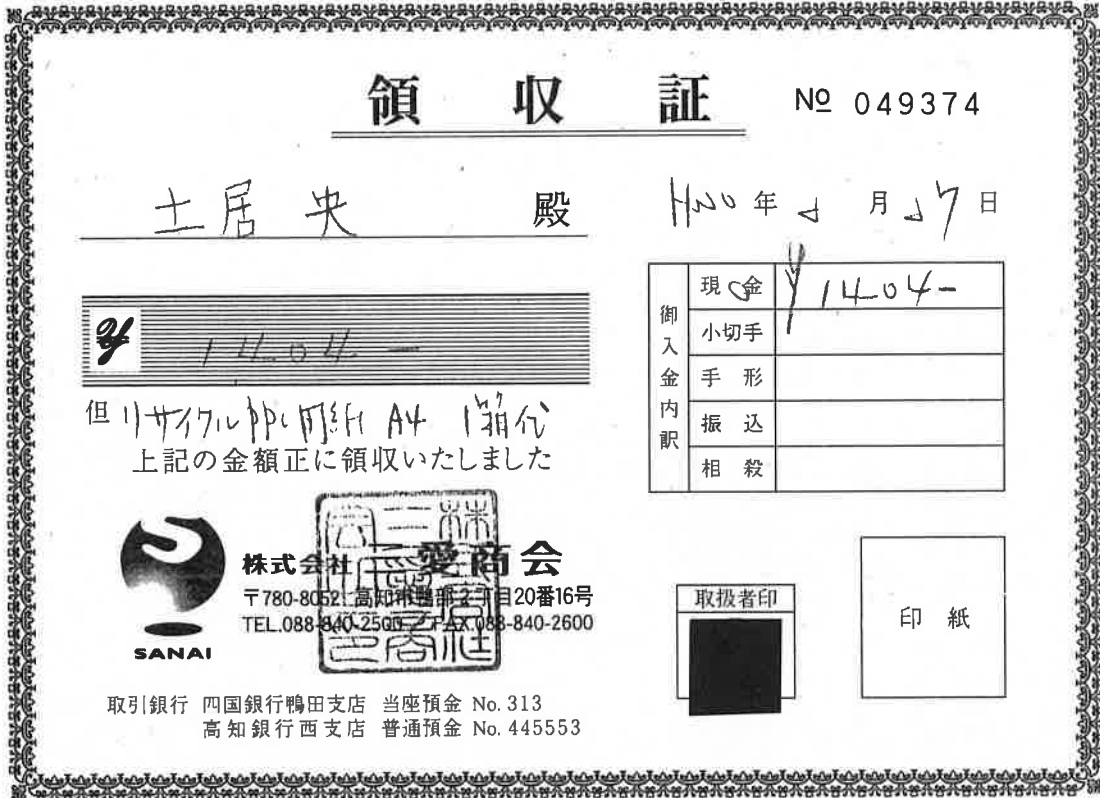 領収証
№ 049374
土居 央 殿
H30年 月 日
¥ 1404-
但 リサイクルPPC用紙 A4 1箱代
上記の金額正に領収いたしました
御入金内訳
現金 ¥1404-
小切手
手形
振込
相殺
株式会社三愛商会
〒780-8052 高知市鴨部2丁目20番16号
TEL.088-840-2500 FAX.088-840-2600
SANAI
取扱者印
印紙
取引銀行 四国銀行鴨田支店 当座預金 No.313
高知銀行西支店 普通預金 No.445553